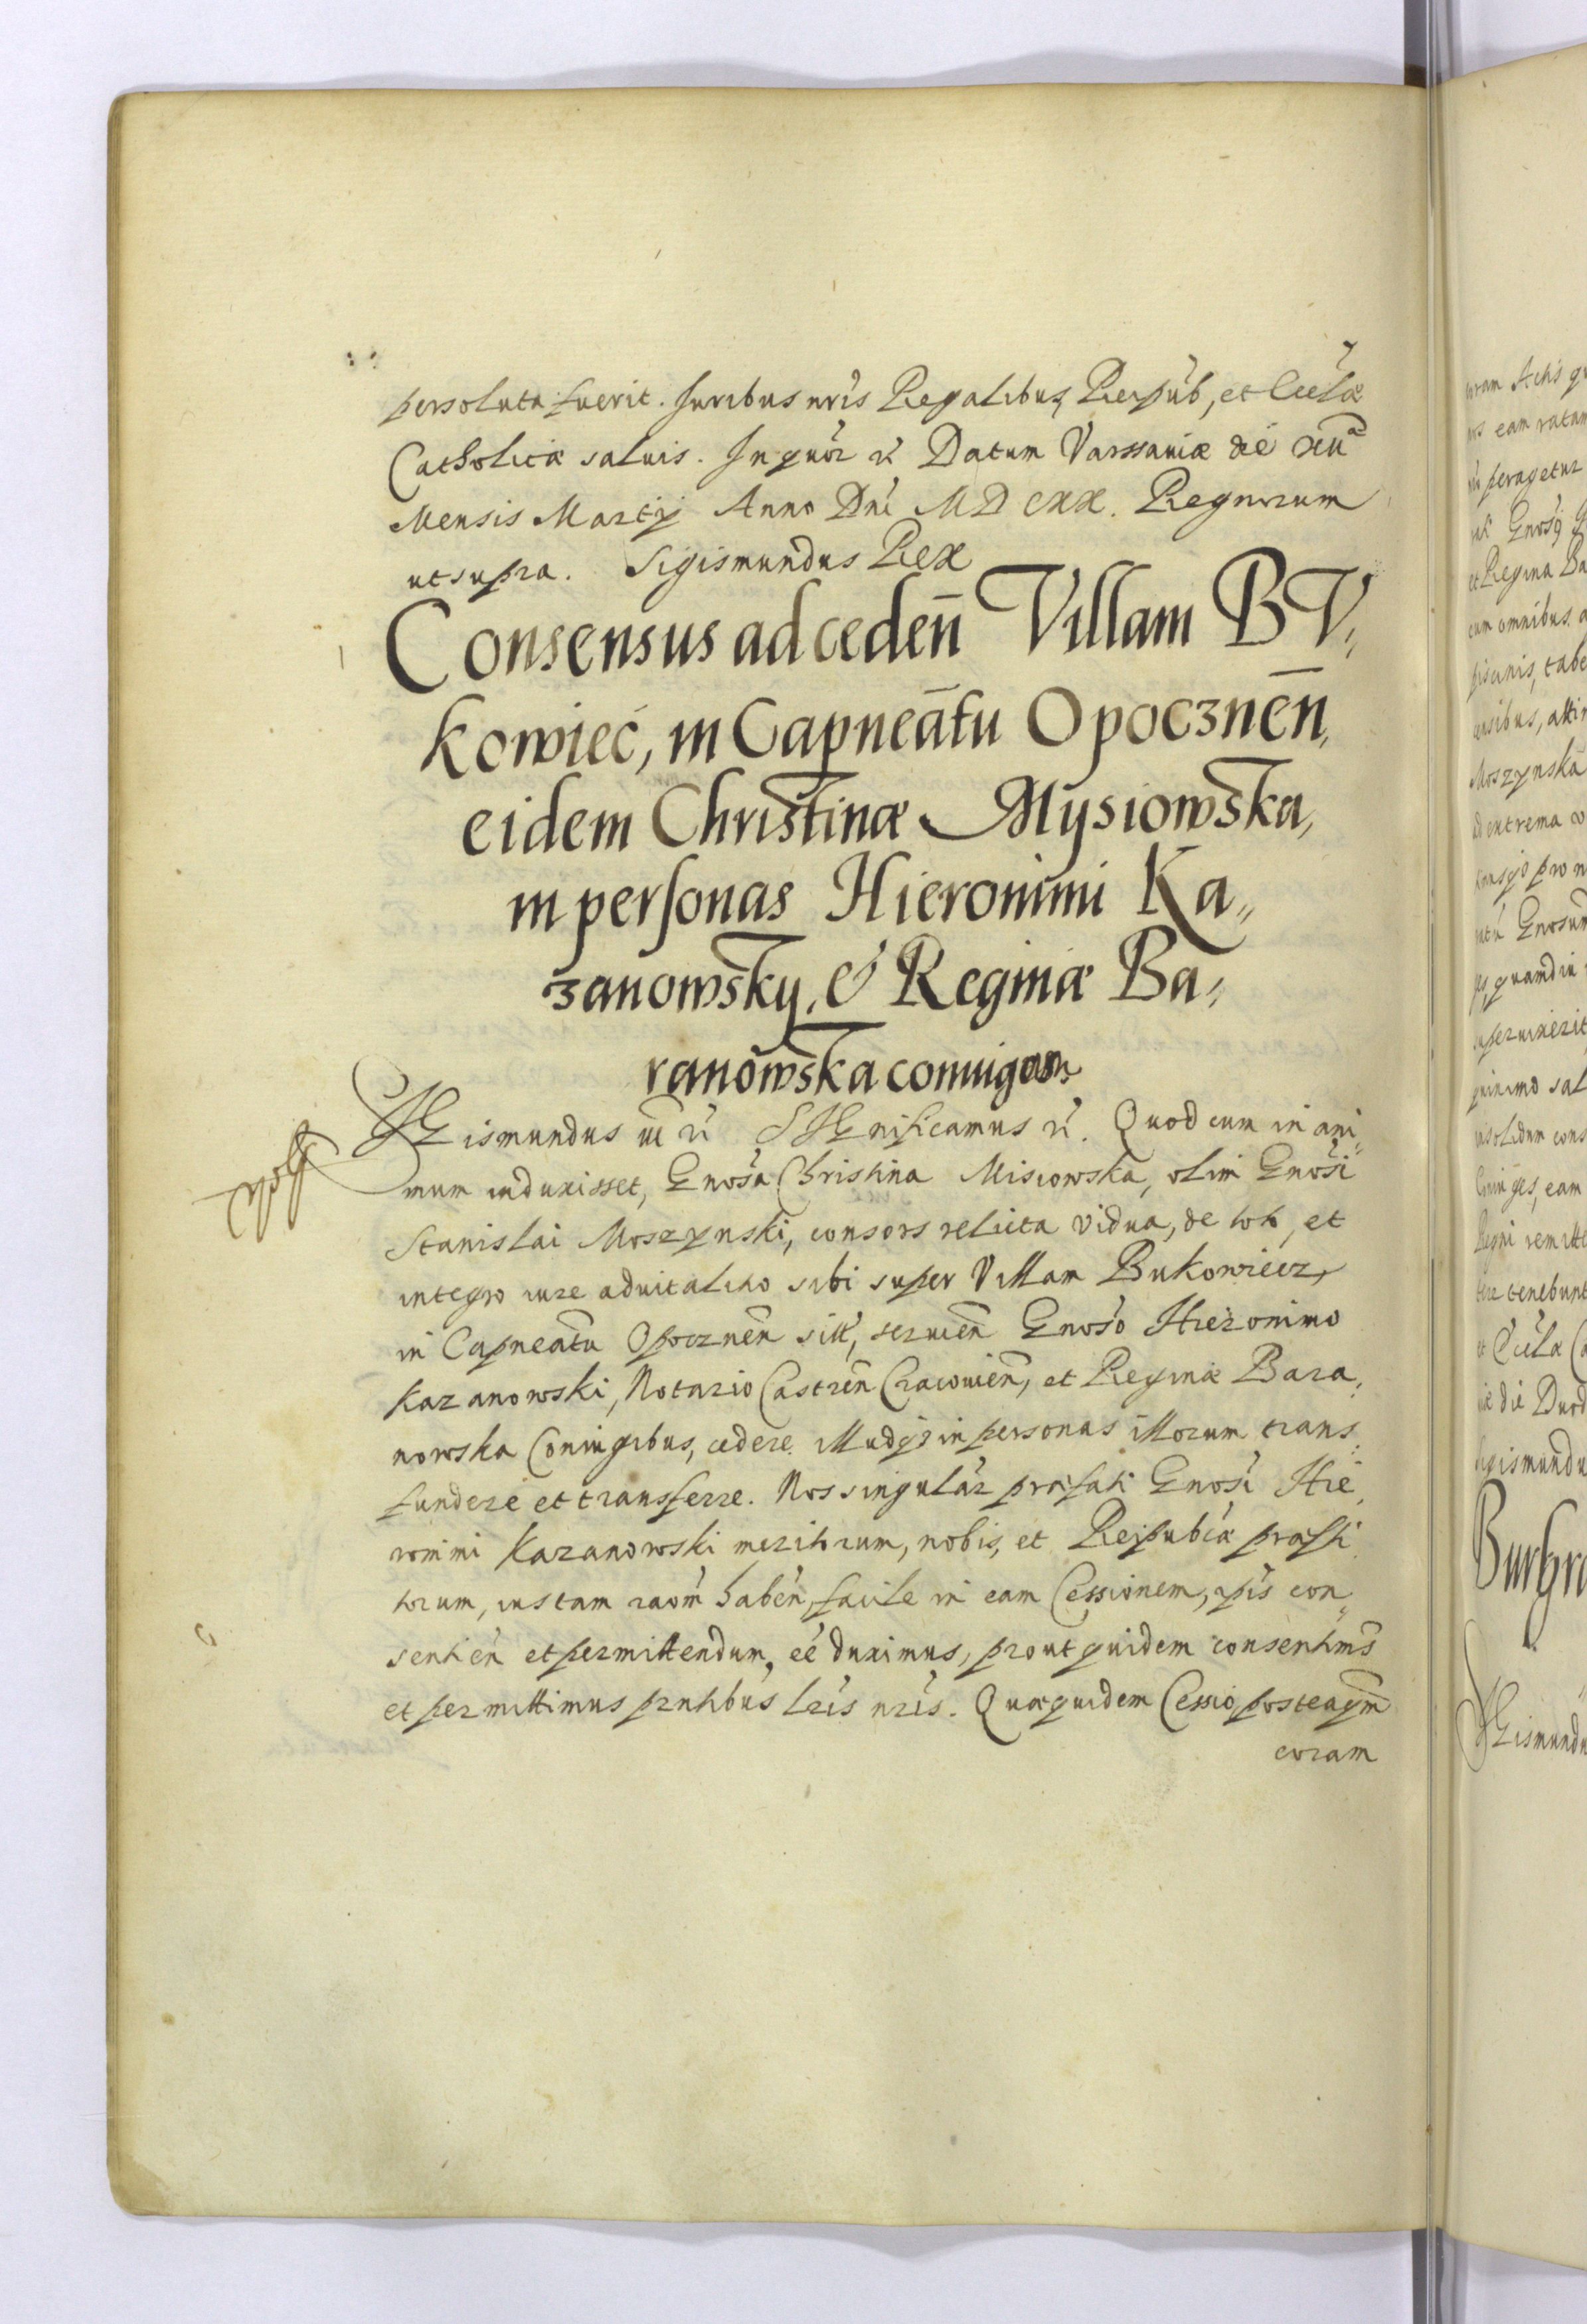 persoluta fuerit. Juribus nris Regalibus, Reipúb, et Ecclæ
Catholicæ saluis. In quor̃ rÉ Datum Varssauiæ die
Mensis Martij Anno Dni MDCXX. Regnorum
ut supra. Sigismundus Rex
Consensus ad cedeñ Villam BV,,
kowiec, in Capneātu Opocznēn,
eidem Christinæ Mysiowska,
in personas Hieronimi Ka,,
zanowsky, & Reginæ Ba,,
ranowska coniugum
SIGismundus iii rÉ SIGnificamus rÉ. Quod cum in ani,,
mum induxisset, Gnosa Christina Misiowska, olim Gnosi
Stanislai Moszynski, consors relicta vidua, de toto, et
integro iure aduitalitio sibi super Villam Bukowiecz,
in Capneātu Opocznēn sitt, seruieñ Gnoso Hieronimo
Kazanowski, Notario Castreñ Cracouieñ, et Reginæ Bara,,
nowska Coniugibus, cedere. Illudqȝ in personas illorum trans,,
fundere et transferre. Nos singulár præfati Gnosi Hie,,
ronimi Kazanowski meritorum, nobis, et Reipubcæ præsti
torum, iustam raom̃ habeñ, facile in eam Cessionem, ipis con,,
sentieñ et permittendum, eé duximus, prout quidem consentims
et permittimus prntibus lris nris. Quæquidem Cessio posteaqm̃
coram